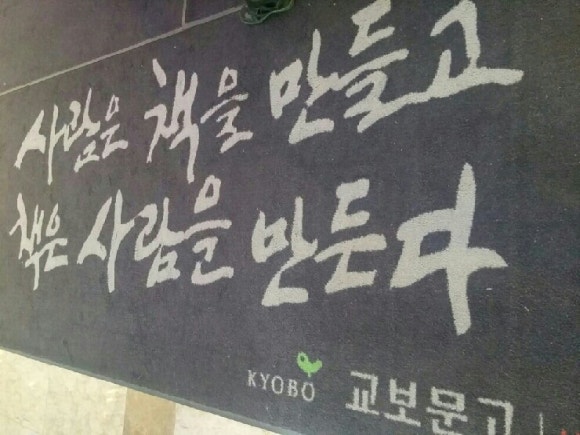 사람은 책을 만들고
책은 사람을 만든다
KYOBO 교보문고